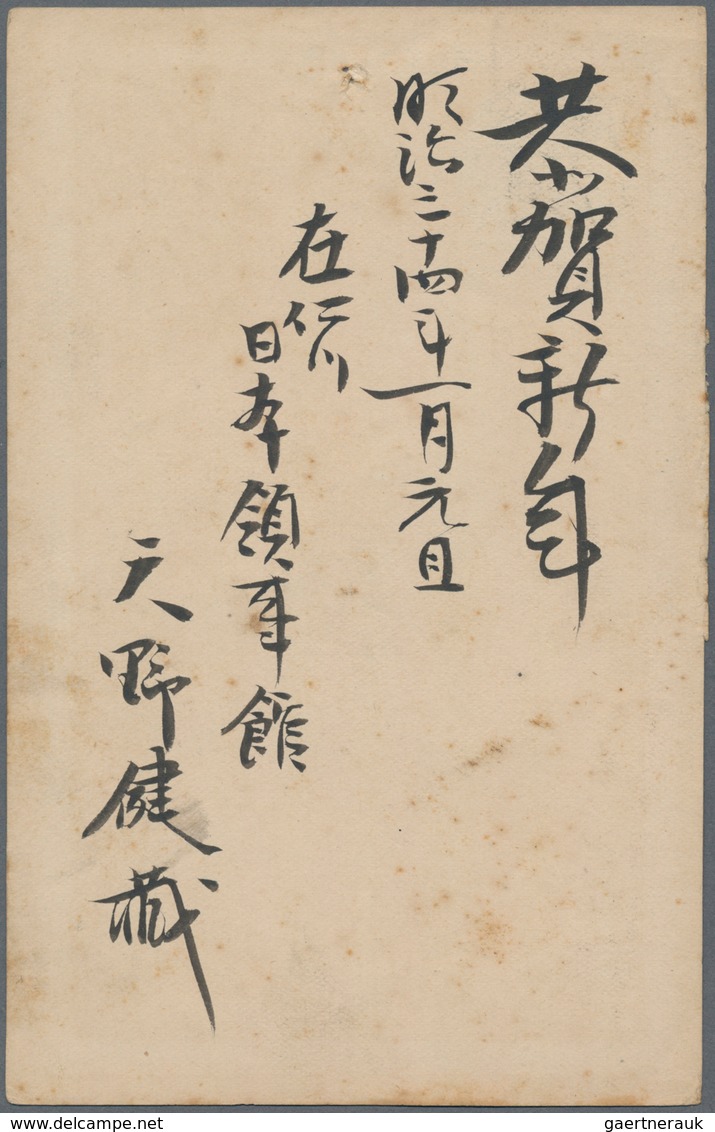 恭賀新年
明治三十四年一月元旦
在仁川
日本領事館
天野健蔵
gaertnerauk